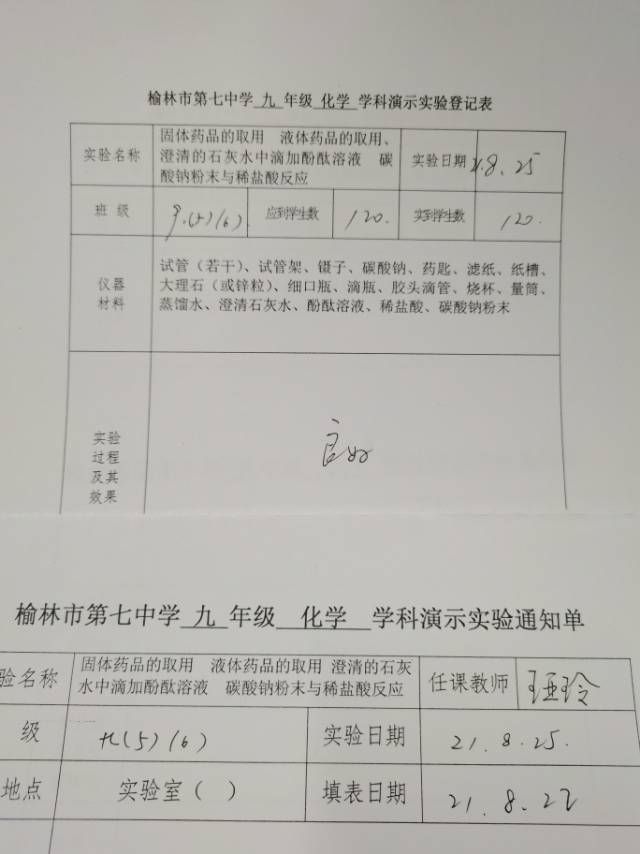 榆林市第七中学 九 年级 化学 学科演示实验登记表
实验名称 固体药品的取用 液体药品的取用、 实验日期 21.8.25
澄清的石灰水中滴加酚酞溶液 碳
酸钠粉末与稀盐酸反应
班 级 九.(5)(6) 应到学生数 120. 实到学生数 120.
仪器 试管（若干）、试管架、镊子、碳酸钠、药匙、滤纸、纸槽、
材料 大理石（或锌粒）、细口瓶、滴瓶、胶头滴管、烧杯、量筒、
蒸馏水、澄清石灰水、酚酞溶液、稀盐酸、碳酸钠粉末
实验
过程
及其
效果
良好
榆林市第七中学 九 年级 化学 学科演示实验通知单
验名称 固体药品的取用 液体药品的取用 澄清的石灰 任课教师
水中滴加酚酞溶液 碳酸钠粉末与稀盐酸反应
级 九(5)(6) 实验日期 21.8.25.
地点 实验室（ ） 填表日期 21.8.22